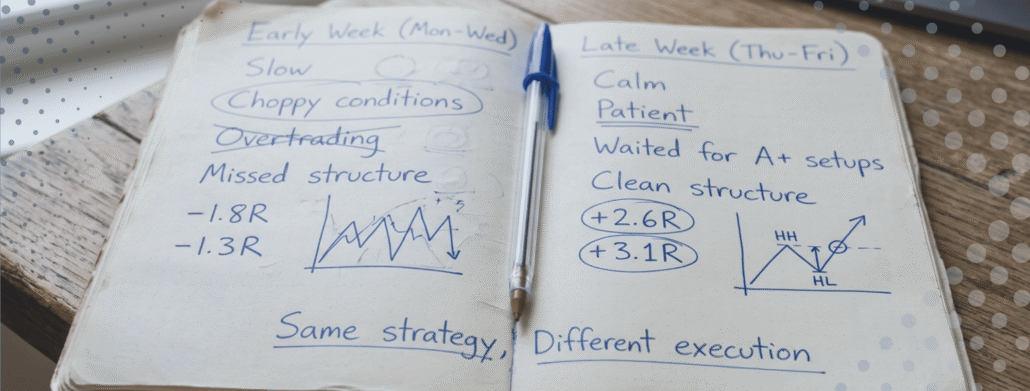 Early Week (Mon-Wed)
Slow
Choppy conditions
Overtrading
Missed structure
-1.8R
-1.3R
Late Week (Thu-Fri)
Calm
Patient
Waited for A+ setups
Clean structure
+2.6R
+3.1R
HH
HL
Same strategy, Different execution